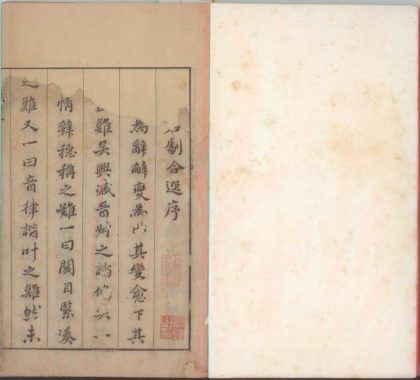 劇合選序
為辭辭變為其變愈下其
難吳興臧晉叔之論
情辭穩稱之難一曰關目緊湊
之難又一曰音律諧叶之難然未